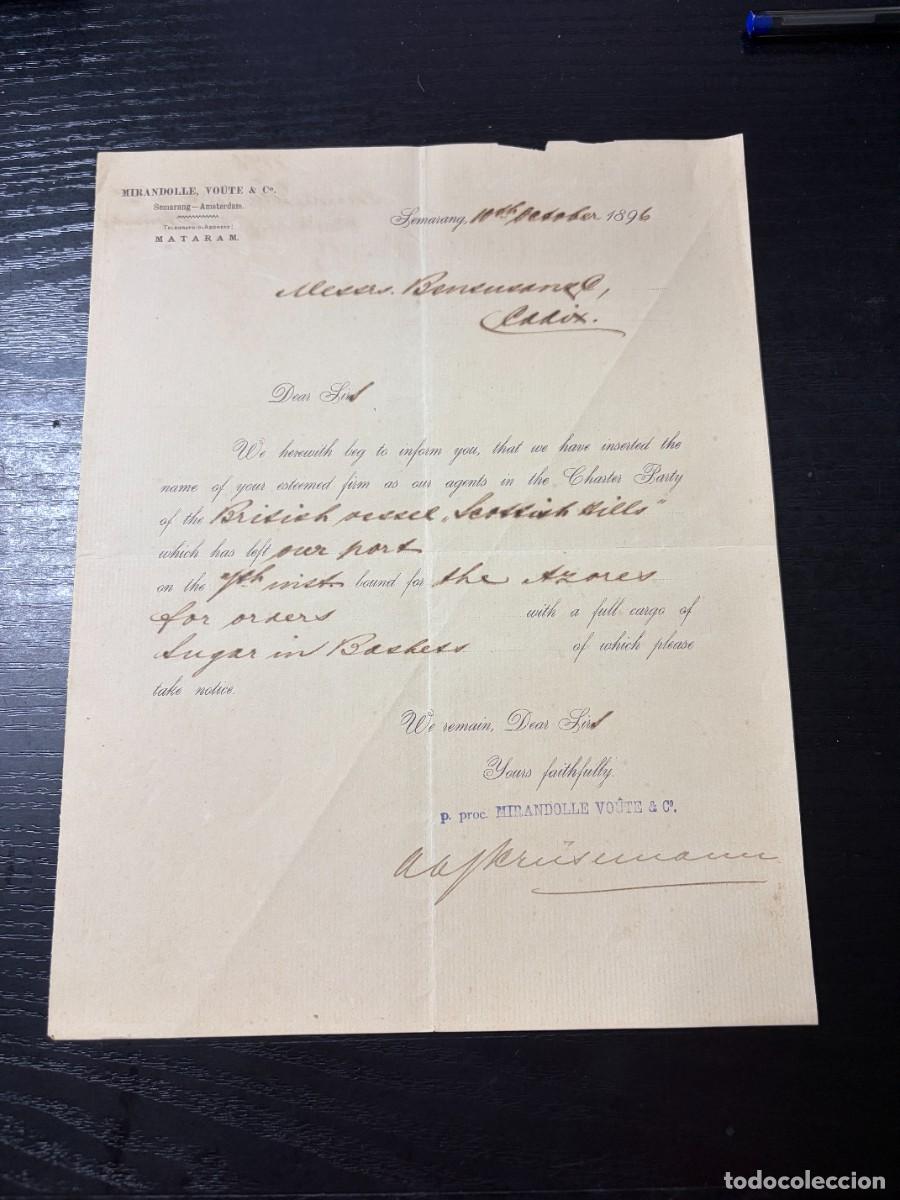 MIRANDOLLE, VOÛTE & Co.
Semarang—Amsterdam.
TELEGRAPHIC-ADDRESS:
MATARAM.
Semarang, 10th October 1896
Messrs. Bensusan & Co,
Cadix.
Dear Sirs
We herewith beg to inform you, that we have inserted the
name of your esteemed firm as our agents in the Charter Party
of the British vessel „Scottish Hills"
which has left our port
on the 7th inst. bound for the Azores
for orders with a full cargo of
Sugar in Baskets of which please
take notice.
We remain, Dear Sirs
Yours faithfully.
p. proc. MIRANDOLLE VOÛTE & Co.
todocoleccion